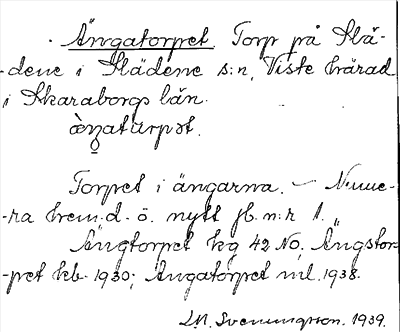 Ängatorpet. Torp på Slä-
-dene i Slädene s:n, Viste härad
i Skaraborgs län.
æ̀ŋatu̇rpət.
Torpet i ängarna. – Nume-
-ra hem.d. ö. nytt fb. n:r 1.
Ängtorpet kg 42 NO, Ängstor-
-pet kb. 1930; Ängatorpet ml. 1938.
L.M. Svenungsson. 1939.